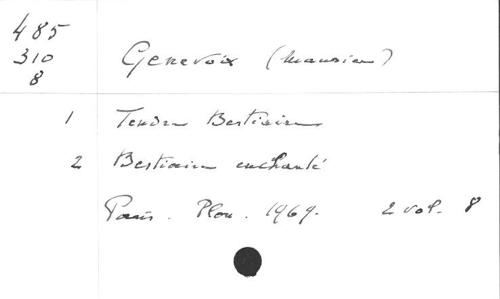 485
310
8
Genevoix (Maurice)
1 Tendre Bestiaire
2 Bestiaire enchanté
Paris. Plon. 1969. 2 vol. 8